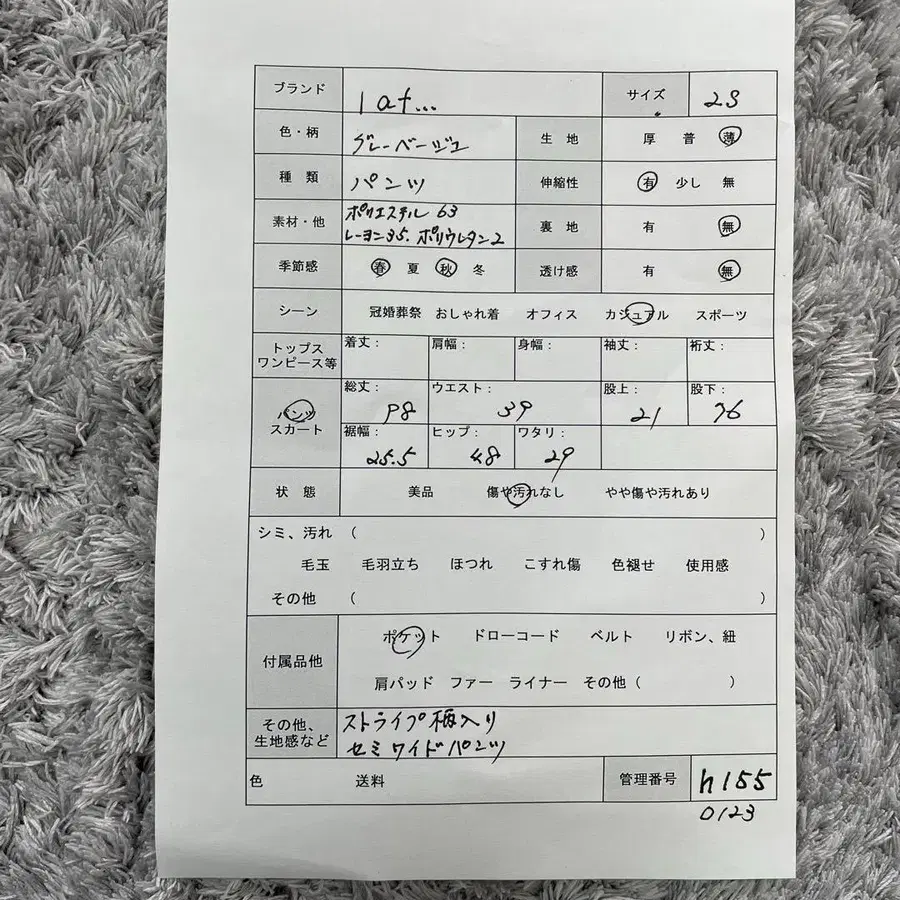 ブランド 1 at... サイズ 2S
色・柄 グレーベージュ 生地 厚 普 薄
種類 パンツ 伸縮性 有 少し 無
素材・他 ポリエステル 63
レーヨン35. ポリウレタン2 裏地 有 無
季節感 春 夏 秋 冬 透け感 有 無
シーン 冠婚葬祭 おしゃれ着 オフィス カジュアル スポーツ
トップス
ワンピース等 着丈： 肩幅： 身幅： 袖丈： 裄丈：
パンツ
スカート 総丈： 98 ウエスト： 39 股上： 21 股下： 76
裾幅： 25.5 ヒップ： 48 ワタリ： 29
状態 美品 傷や汚れなし やや傷や汚れあり
シミ、汚れ （ ）
毛玉 毛羽立ち ほつれ こすれ傷 色褪せ 使用感
その他 （ ）
付属品他 ポケット ドローコード ベルト リボン、紐
肩パッド ファー ライナー その他（ ）
その他、
生地感など ストライプ柄入り
セミワイドパンツ
色 送料 管理番号 h155
0123